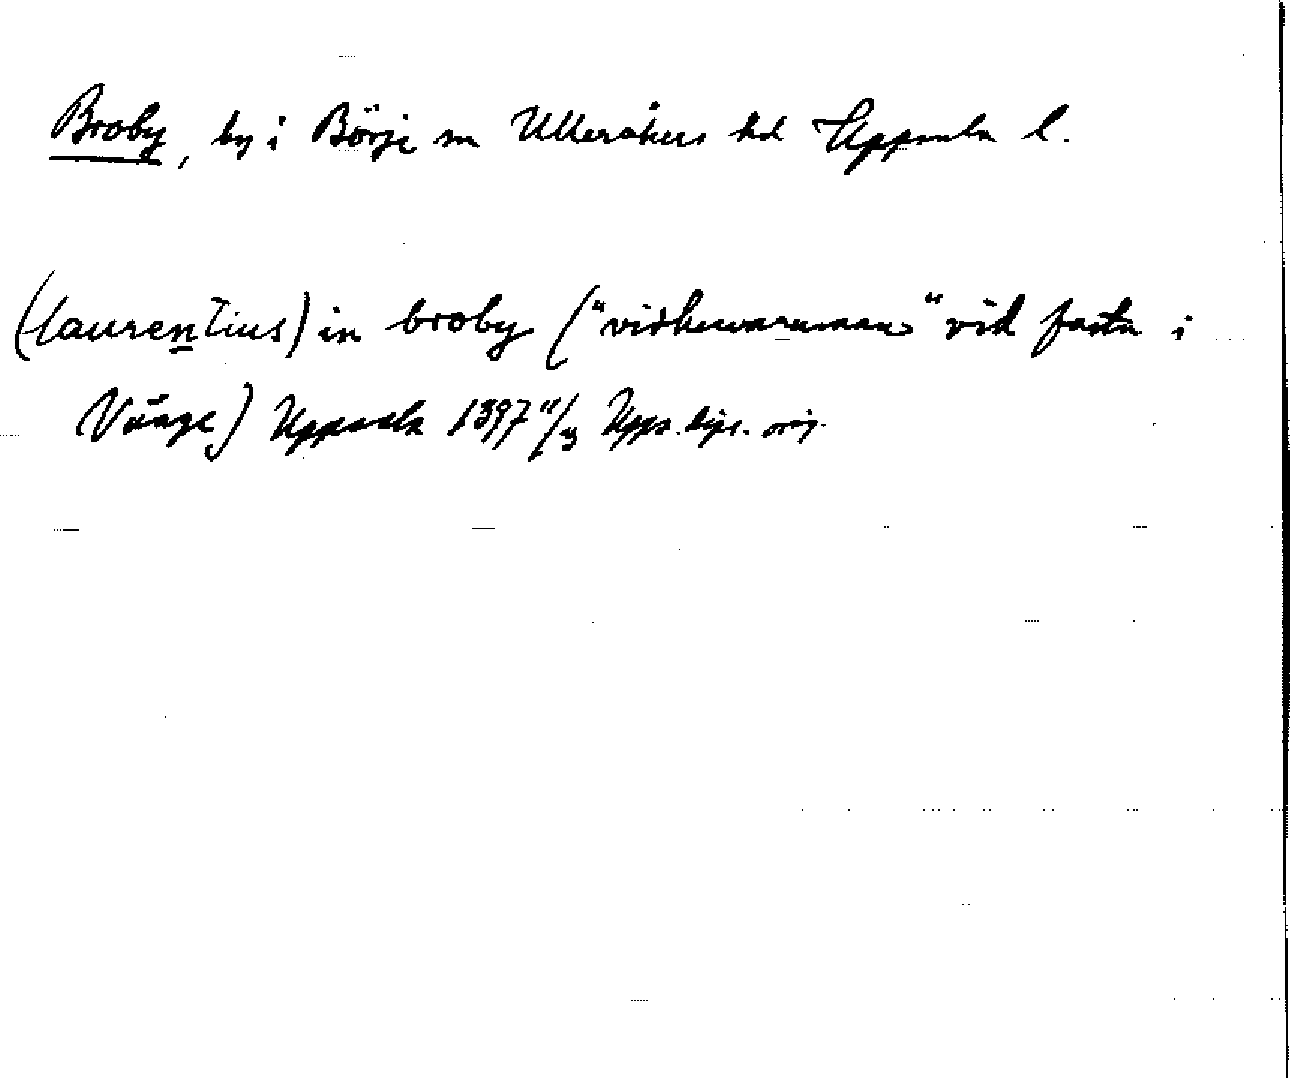 Broby, by i Börje sn Ulleråkers hd Uppsala l.
(laurentius) in broby ("vidherwaruman" vid fasta i
Vänge) Uppsala 1397 11/3 Upps. dipl. orig.